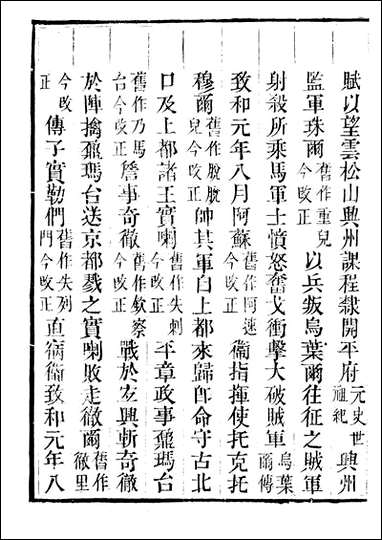 賦以望雲松山興州課程隸開平府元史世祖紀興州
監軍珠爾舊作重兒今改正以兵叛烏葉爾往征之賊軍
射殺所乘馬軍士憤怒奮戈衝擊大破賊軍烏葉爾傳
致和元年八月阿蘇舊作阿速今改正衞指揮使托克托
穆爾舊作脫脫兒今改正帥其軍自上都來歸卽命守古北
口及上都諸王實喇舊作失剌今改正平章政事鼐瑪台
舊作乃馬台今改正詹事奇徹舊作欽察今改正戰於宜興斬奇徹
於陣擒鼐瑪台送京都戮之實喇敗走徹爾舊作徹里
今改正傳子實勒們舊作失列門今改正直宿衞致和元年八